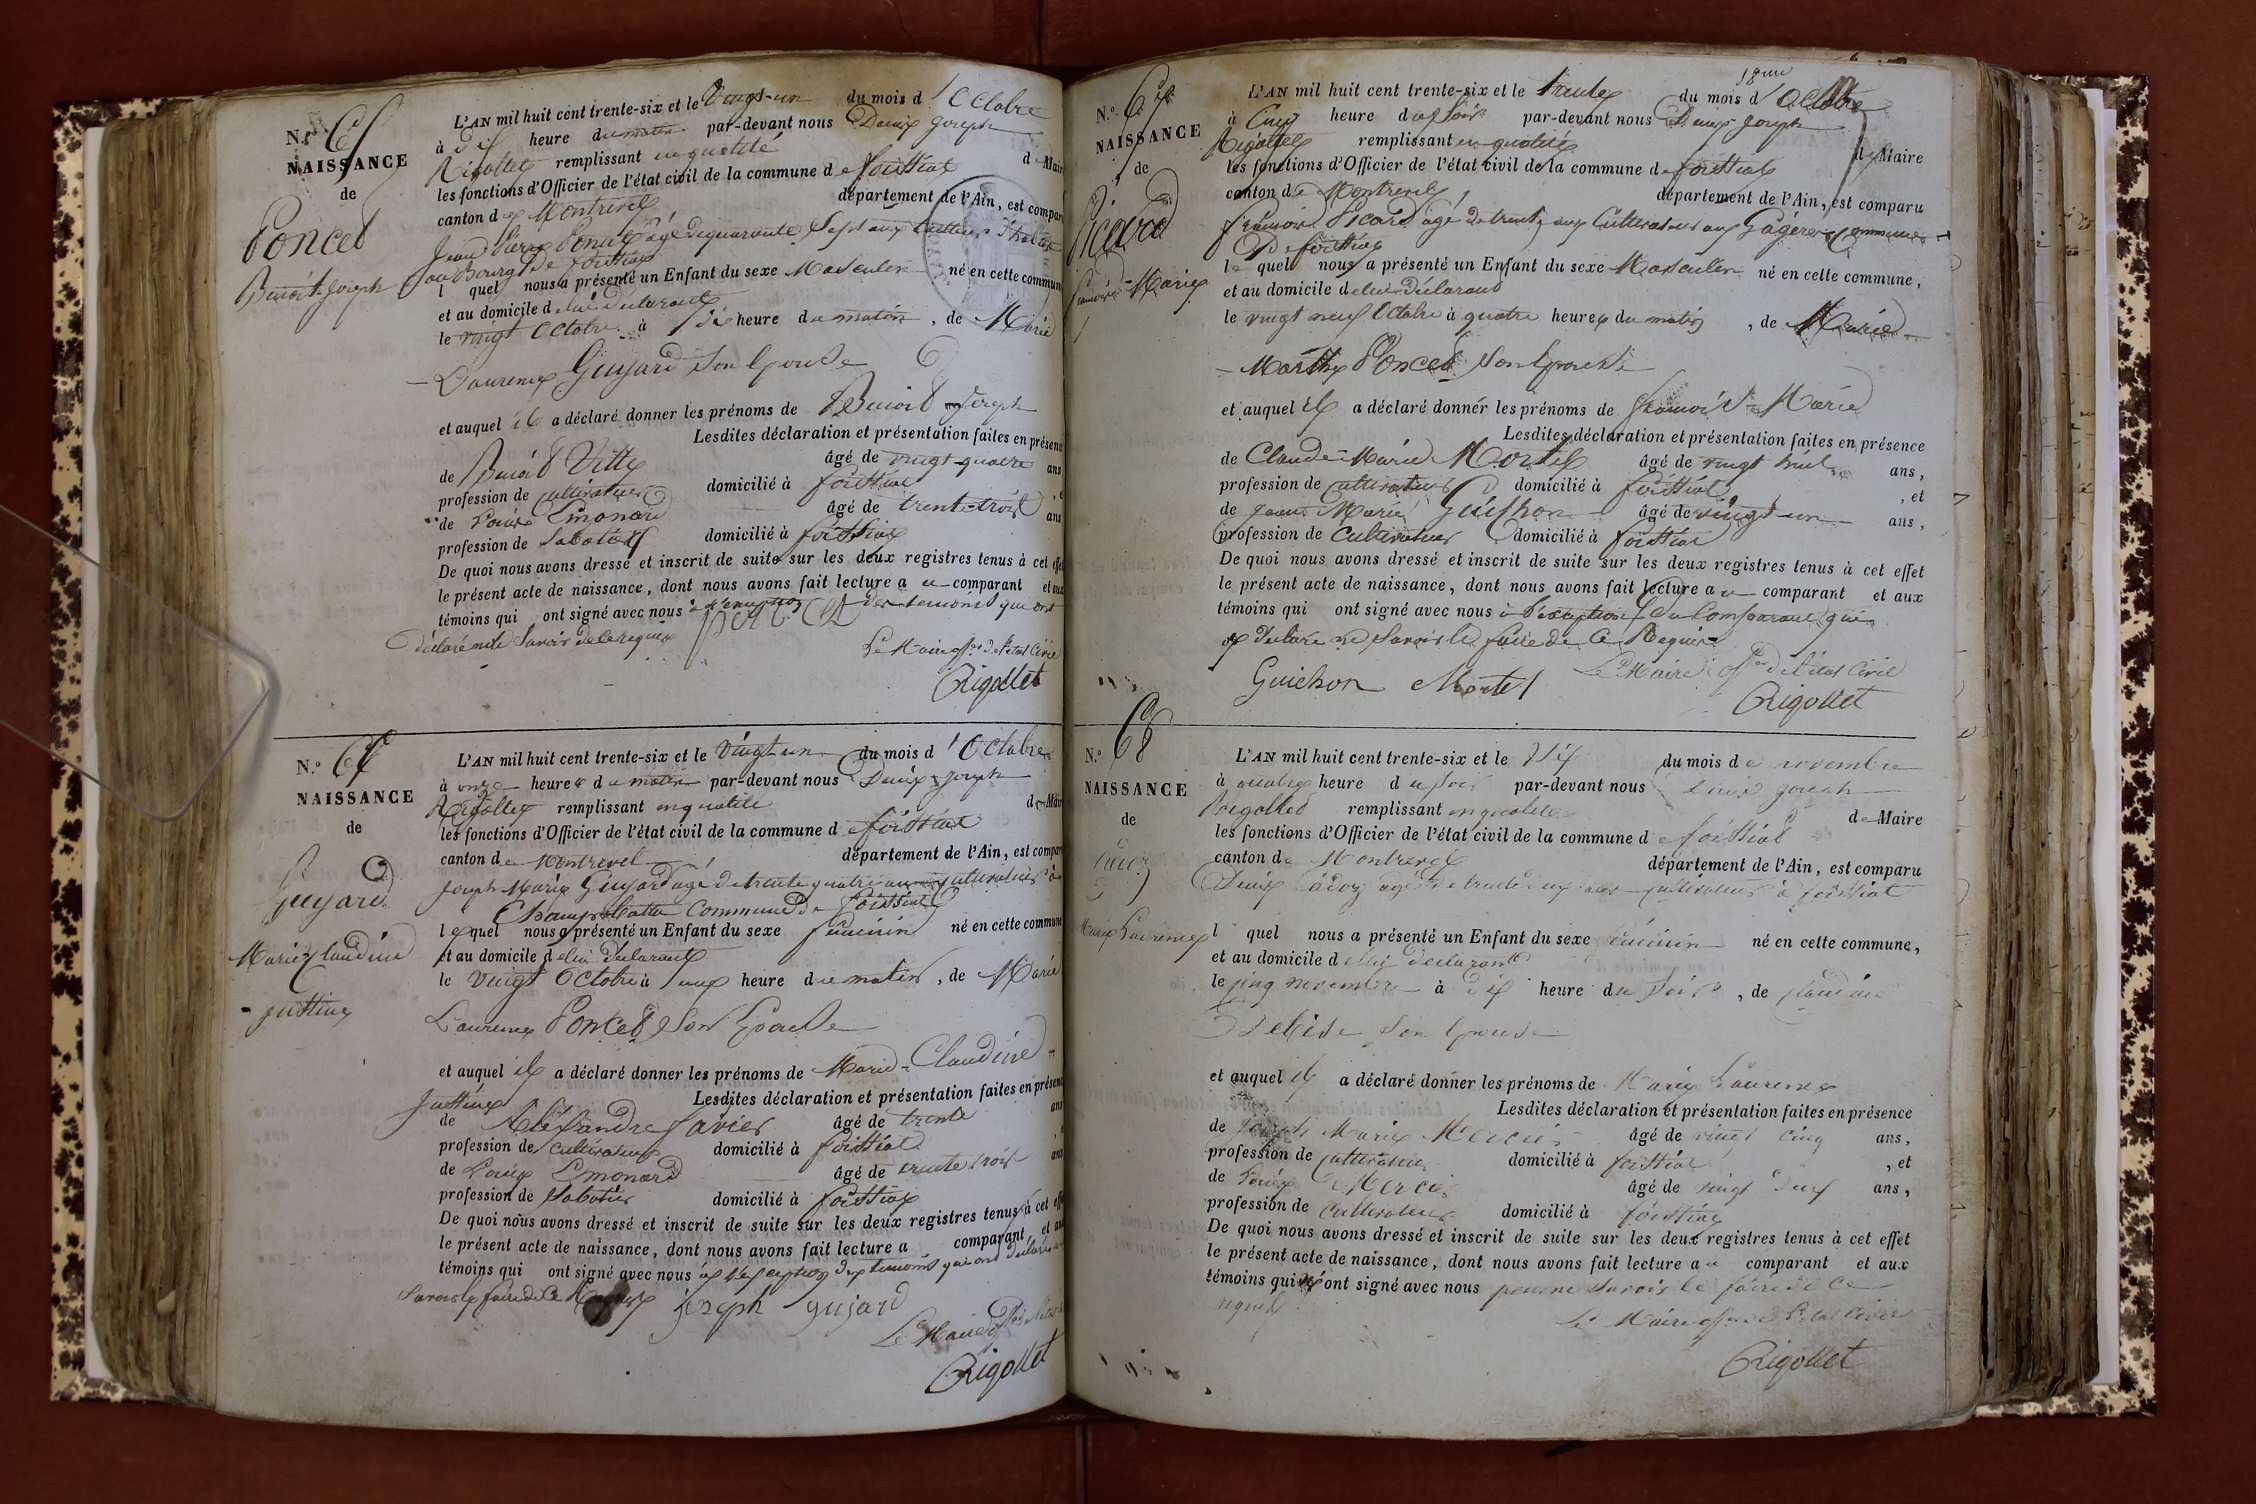 N.º 65
NAISSANCE
de
Poncet
Benoit Joseph
L'AN mil huit cent trente-six et le vingt-un du mois d'Octobre
à dix heure du matin par-devant nous Denis Joseph
Rigollet remplissant en qualité de Maire
les fonctions d'Officier de l'état civil de la commune de foissiat
canton de Montrevel département de l'Ain, est comparu
Jean Pierre Poncet âgé de quarante sept ans
au Bourg de foissiat
l quel nous a présenté un Enfant du sexe Masculin né en cette commune
et au domicile de lui déclarant
le vingt Octobre à dix heure du matin, de Marie
Laurence Guyard Son Epouse
et auquel il a déclaré donner les prénoms de Benoit Joseph
Lesdites déclaration et présentation faites en présence
de Benoit Vitte âgé de vingt quatre ans
profession de cultivateur domicilié à foissiat
de Louis Emonard âgé de trente-trois ans
profession de Sabotier domicilié à foissiat
De quoi nous avons dressé et inscrit de suite sur les deux registres tenus à cet effet
le présent acte de naissance, dont nous avons fait lecture au comparant et aux
témoins qui ont signé avec nous à l'exception des temoins qui ont
déclaré ne le Savoir de ce requis
Le Maire off.er de l'état Civil
Rigollet
N.º 66
NAISSANCE
de
Guyard
Marie Claudine
- Justine
L'AN mil huit cent trente-six et le vingt un du mois d'Octobre
à onze heures du matin par-devant nous Denis Joseph
Rigollet remplissant en qualité de Maire
les fonctions d'Officier de l'état civil de la commune de foissiat
canton de Montrevel département de l'Ain, est comparu
Joseph Marie Guyard âgé de trente quatre ans cultivateur à
commune de foissiat
le quel nous a présenté un Enfant du sexe féminin né en cette commune
et au domicile de lui déclarant
le vingt Octobre à heure du matin, de Marie
Laurence Poncet Son Epouse
et auquel il a déclaré donner les prénoms de Marie-Claudine
Justine Lesdites déclaration et présentation faites en présence
de Alexandre âgé de trente ans
profession de cultivateur domicilié à foissiat
de Louis Emonard âgé de trente trois ans
profession de Sabotier domicilié à foissiat
De quoi nous avons dressé et inscrit de suite sur les deux registres tenus à cet effet
le présent acte de naissance, dont nous avons fait lecture a comparant et aux
témoins qui ont signé avec nous à l'exception des temoins qui ont déclaré ne
Savoir le faire de ce Requis Joseph gujard
Le Maire off.er de l'état
Rigollet
N.º 67
NAISSANCE
de
Picard
françois-Marie
L'AN mil huit cent trente-six et le trente du mois d'Octobre
à cinq heure du Soir par-devant nous Denis Joseph
Rigollet remplissant en qualité de Maire
les fonctions d'Officier de l'état civil de la commune de foissiat
canton de Montrevel département de l'Ain, est comparu
françois Picard âgé de trente ans Cultivateur aux commune
de foissiat
le quel nous a présenté un Enfant du sexe Masculin né en cette commune,
et au domicile de lui déclarant
le vingt neuf Octobre à quatre heures du matin, de Marie
Marthe Poncet Son Epouse
et auquel il a déclaré donner les prénoms de françois-Marie
Lesdites déclaration et présentation faites en présence
de Claude-Marie Mortel âgé de vingt huit ans,
profession de cultivateur domicilié à foissiat, et
de Jean Marie Guichon âgé de vingt-un ans,
profession de Cultivateur domicilié à foissiat
De quoi nous avons dressé et inscrit de suite sur les deux registres tenus à cet effet
le présent acte de naissance, dont nous avons fait lecture au comparant et aux
témoins qui ont signé avec nous à l'exception du Comparant qui
a déclaré ne Savoir le faire de ce Requis
Guichon Mortel Le Maire off.er de l'état Civil
Rigollet
N.º 68
NAISSANCE
de
Marie Laurence
L'AN mil huit cent trente-six et le six du mois de novembre
à quatre heure du soir par-devant nous Denis Joseph
Rigollet remplissant en qualité de Maire
les fonctions d'Officier de l'état civil de la commune de foissiat
canton de Montrevel département de l'Ain, est comparu
Denis âgé de trente deux ans cultivateur à foissiat
l quel nous a présenté un Enfant du sexe féminin né en cette commune,
et au domicile de lui déclarant
le cinq novembre à dix heure du Soir, de Claudine
Son Epouse
et auquel il a déclaré donner les prénoms de Marie Laurence
Lesdites déclaration et présentation faites en présence
de Marie Mercier âgé de vingt cinq ans,
profession de cultivateur domicilié à foissiat, et
de Louis Mercier âgé de vingt deux ans,
profession de Cultivateur domicilié à foissiat
De quoi nous avons dressé et inscrit de suite sur les deux registres tenus à cet effet
le présent acte de naissance, dont nous avons fait lecture au comparant et aux
témoins qui n'ont signé avec nous pour ne Savoir le faire de ce
requis
Le Maire off.er de l'état Civil
Rigollet